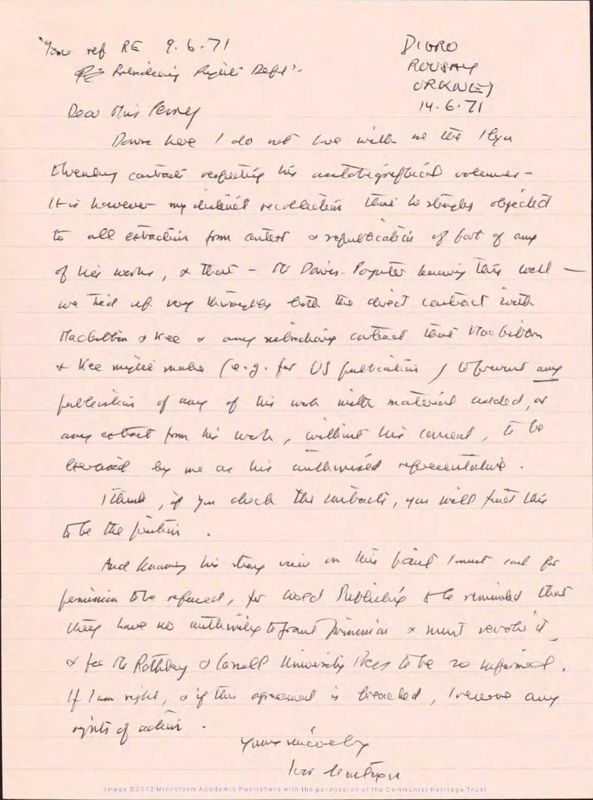 Your ref RE 9.6.71
Re Subsidiary Rights Dept.
DIGRO
ROUSAY
ORKNEY
14.6.71
Dear Miss
Down here I do not have with me the Ilya
Ehrenburg contracts respecting his autobiographical volumes –
It is however my distinct recollection that he strongly objected
to all extraction from context & republication of part of any
of his works, & that – Mr Davis-Poynter knowing this well –
we tied up very thoroughly both the direct contract with
MacGibbon & Kee & any subsidiary contract that MacGibbon
& Kee might make (e.g. for US publication) to prevent any
publication of any of his work with material added, or
any extract from his work, without his consent, to be
by me as his authorised representative.
I think, if you check the contracts, you will find this
to be the position.
And knowing his strong view on this point I must ask for
permission to be refused, for World Publishing to be reminded that
they have no authority to grant permission & must revoke it,
& for Mr Rothberg & Cornell University Press to be so informed.
If I am right, & if this agreement is breached, I reserve any
rights of action.
Yours sincerely
Ivor Montagu
Image ©2012 Microform Academic Publishers with the permission of the Communist Heritage Trust